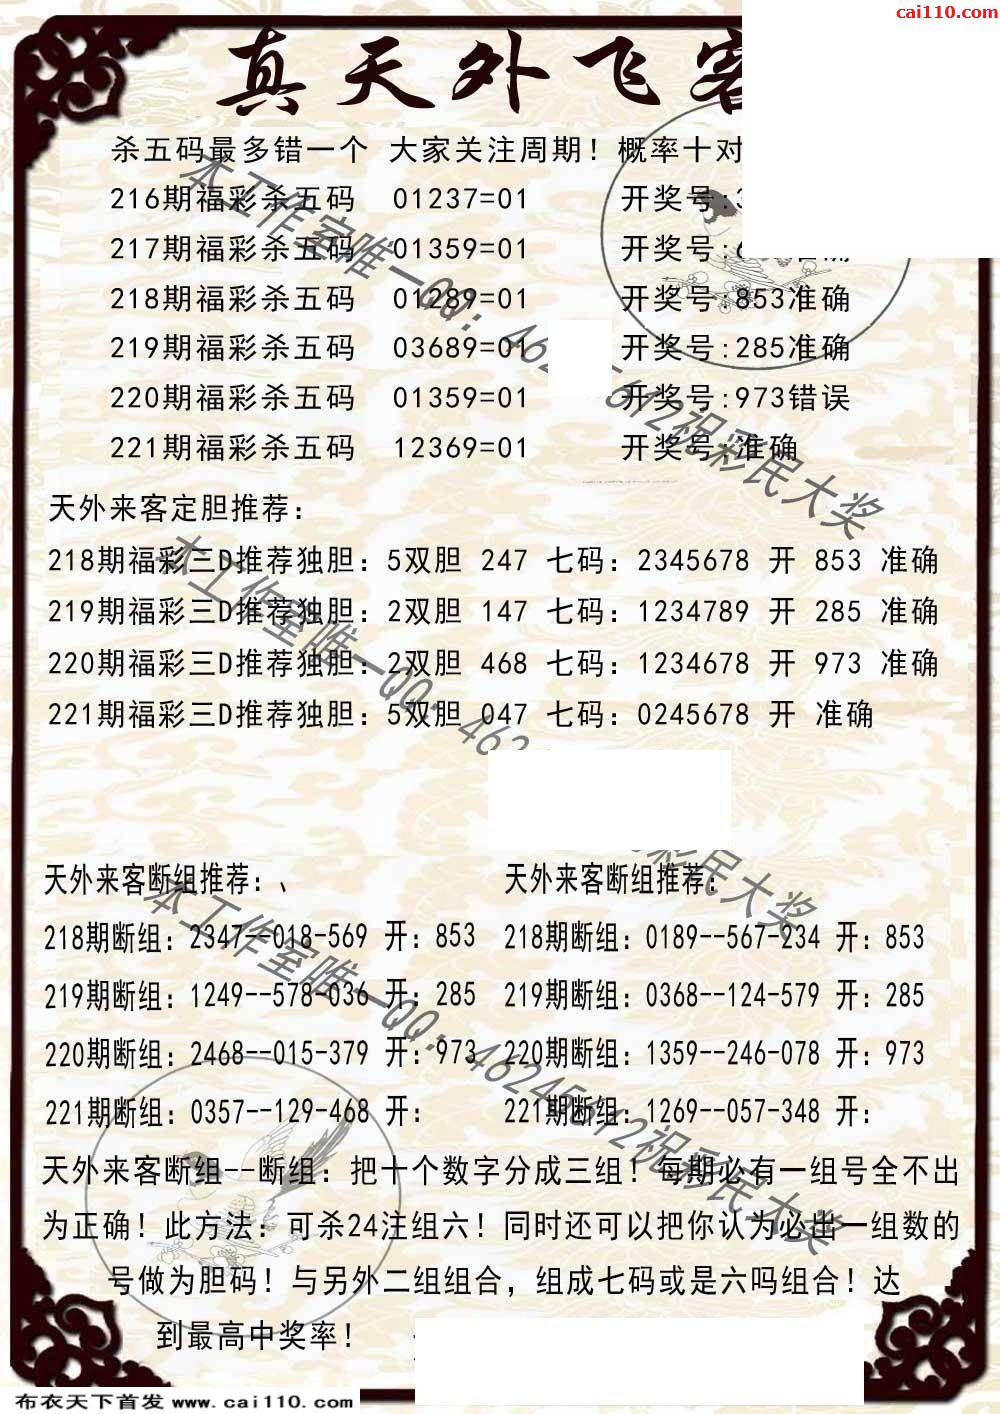 cai110.com
真天外飞客
杀五码最多错一个 大家关注周期！概率十对
216期福彩杀五码 01237=01 开奖号:3
217期福彩杀五码 01359=01 开奖号:6 准确
218期福彩杀五码 01289=01 开奖号:853准确
219期福彩杀五码 03689=01 开奖号:285准确
220期福彩杀五码 01359=01 开奖号:973错误
221期福彩杀五码 12369=01 开奖号:准确
天外来客定胆推荐：
218期福彩三D推荐独胆：5双胆 247 七码：2345678 开 853 准确
219期福彩三D推荐独胆：2双胆 147 七码：1234789 开 285 准确
220期福彩三D推荐独胆：2双胆 468 七码：1234678 开 973 准确
221期福彩三D推荐独胆：5双胆 047 七码：0245678 开 准确
天外来客断组推荐：、
218期断组：2347--018-569 开：853
219期断组：1249--578-036 开：285
220期断组：2468--015-379 开：973
221期断组：0357--129-468 开：
天外来客断组推荐：
218期断组：0189--567-234 开：853
219期断组：0368--124-579 开：285
220期断组：1359--246-078 开：973
221期断组：1269--057-348 开：
天外来客断组--断组：把十个数字分成三组！每期必有一组号全不出
为正确！此方法：可杀24注组六！同时还可以把你认为必出一组数的
号做为胆码！与另外二组组合，组成七码或是六吗组合！达
到最高中奖率！
本工作室唯一QQ：462 612祝彩民大奖
本工作室唯一QQ：462 彩民大奖
本工作室唯一QQ：46245612祝彩民大奖
布衣天下首发 www.cai110.com